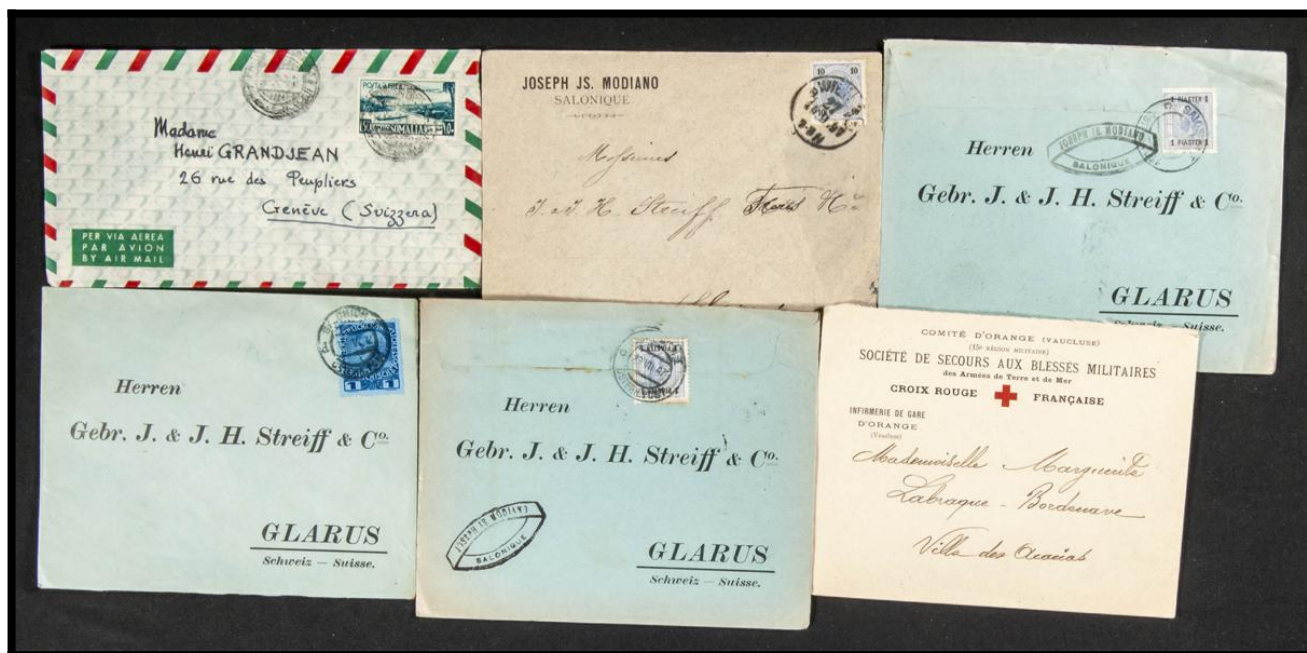 POSTA AEREA
SOMALIA
Madame
Henri GRANDJEAN
26 rue des Peupliers
Genève (Svizzera)
PER VIA AEREA
PAR AVION
BY AIR MAIL
JOSEPH JS. MODIANO
SALONIQUE
10 10
Messieurs
J. & J. H. Streiff
1 PIASTER 1
1 PIASTER 1
JOSEPH JS. MODIANO
SALONIQUE
Herren
Gebr. J. & J. H. Streiff & Co.
GLARUS
Schweiz — Suisse.
1
Herren
Gebr. J. & J. H. Streiff & Co.
GLARUS
Schweiz — Suisse.
Herren
Gebr. J. & J. H. Streiff & Co.
JOSEPH JS MODIANO
SALONIQUE
GLARUS
Schweiz — Suisse.
COMITÉ D'ORANGE (VAUCLUSE)
(15e RÉGION MILITAIRE)
SOCIÉTÉ DE SECOURS AUX BLESSÉS MILITAIRES
des Armées de Terre et de Mer
CROIX ROUGE FRANÇAISE
INFIRMERIE DE GARE
D'ORANGE
(Vaucluse)
Mademoiselle Marguerite
Labraque - Bordenave
Villa des Acacias